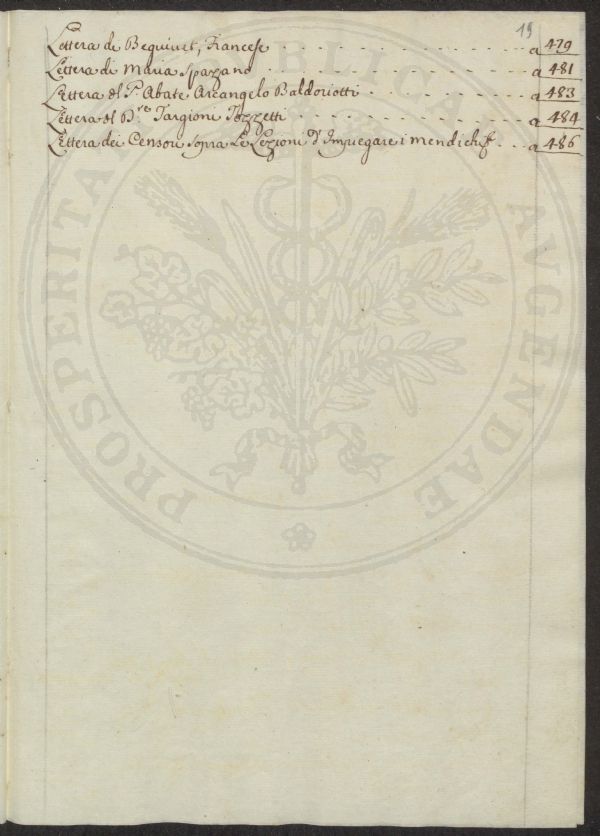 19
Lettera di Beguivet, Francese - - - - - - - - - - a 479
Lettera di Maria Spazzano - - - - - - - - - - a 481
Lettera del Sr. Abate Arcangelo Baldoriotti - - - - - - - - a 483
Lettera del Dre Targioni Tozzetti - - - - - - - - - - a 484
Lettera dei Censori Sopra Le Lezioni d'Impiegare i mendichi - - - a 486
PROSPERITATI PUBLICAE AVGENDAE